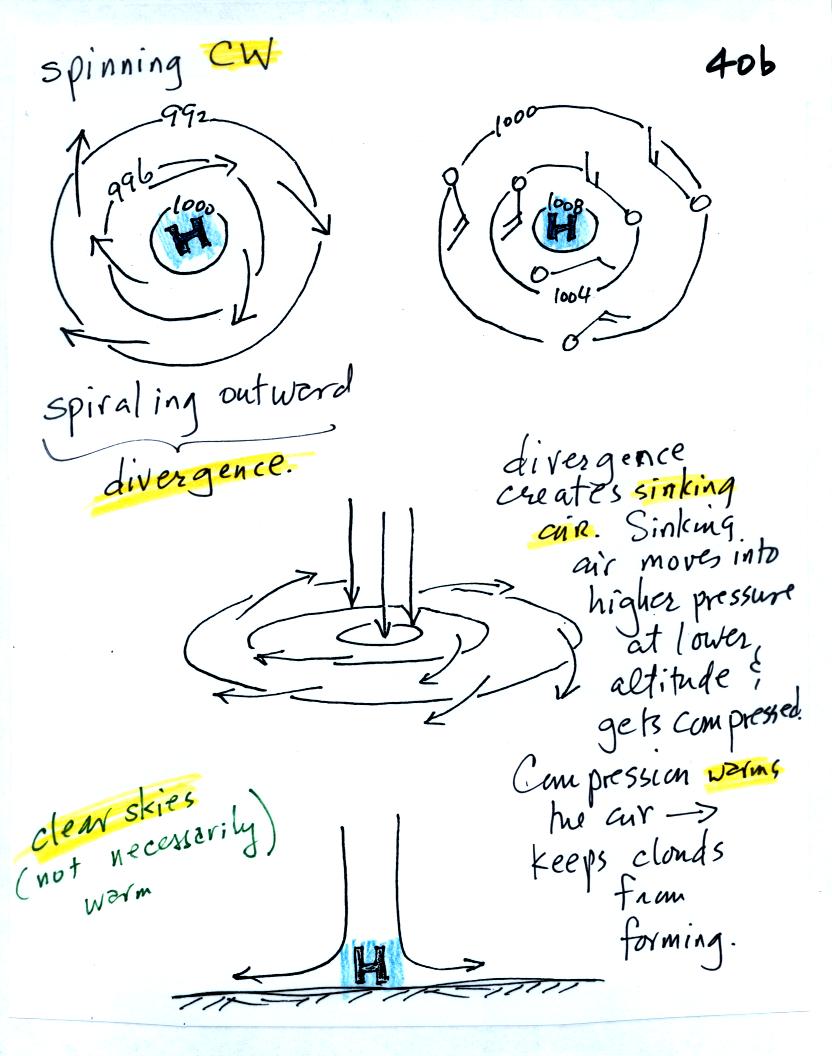 spinning CW
40b
992
996
1000
H
1000
1008
H
1004
spiraling outward
divergence.
divergence
creates sinking
air. Sinking
air moves into
higher pressure
at lower
altitude &
gets compressed.
Compression warms
the air →
keeps clouds
from
forming.
clear skies
(not necessarily)
warm
H